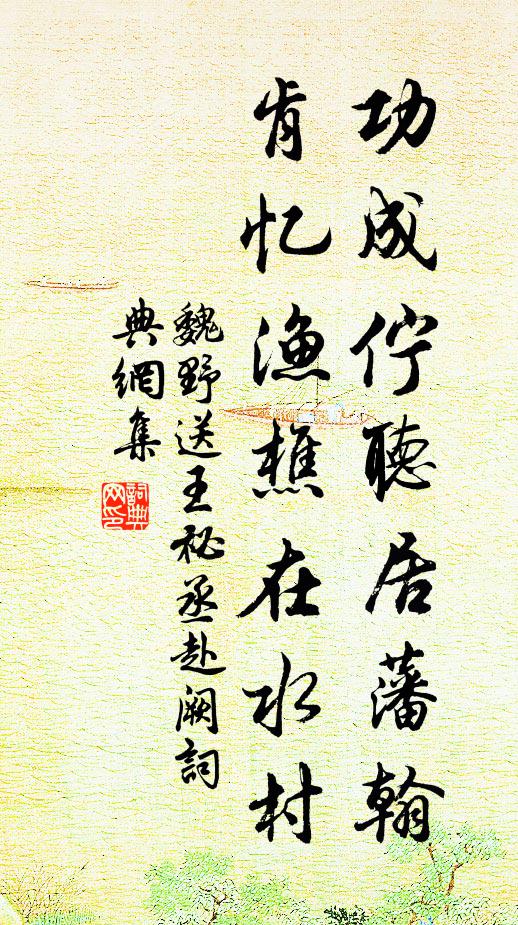 功成佇聽居藩翰
肯忆漁樵在水村
魏野送王祕丞赴阙詞
典網集
詞典
网印